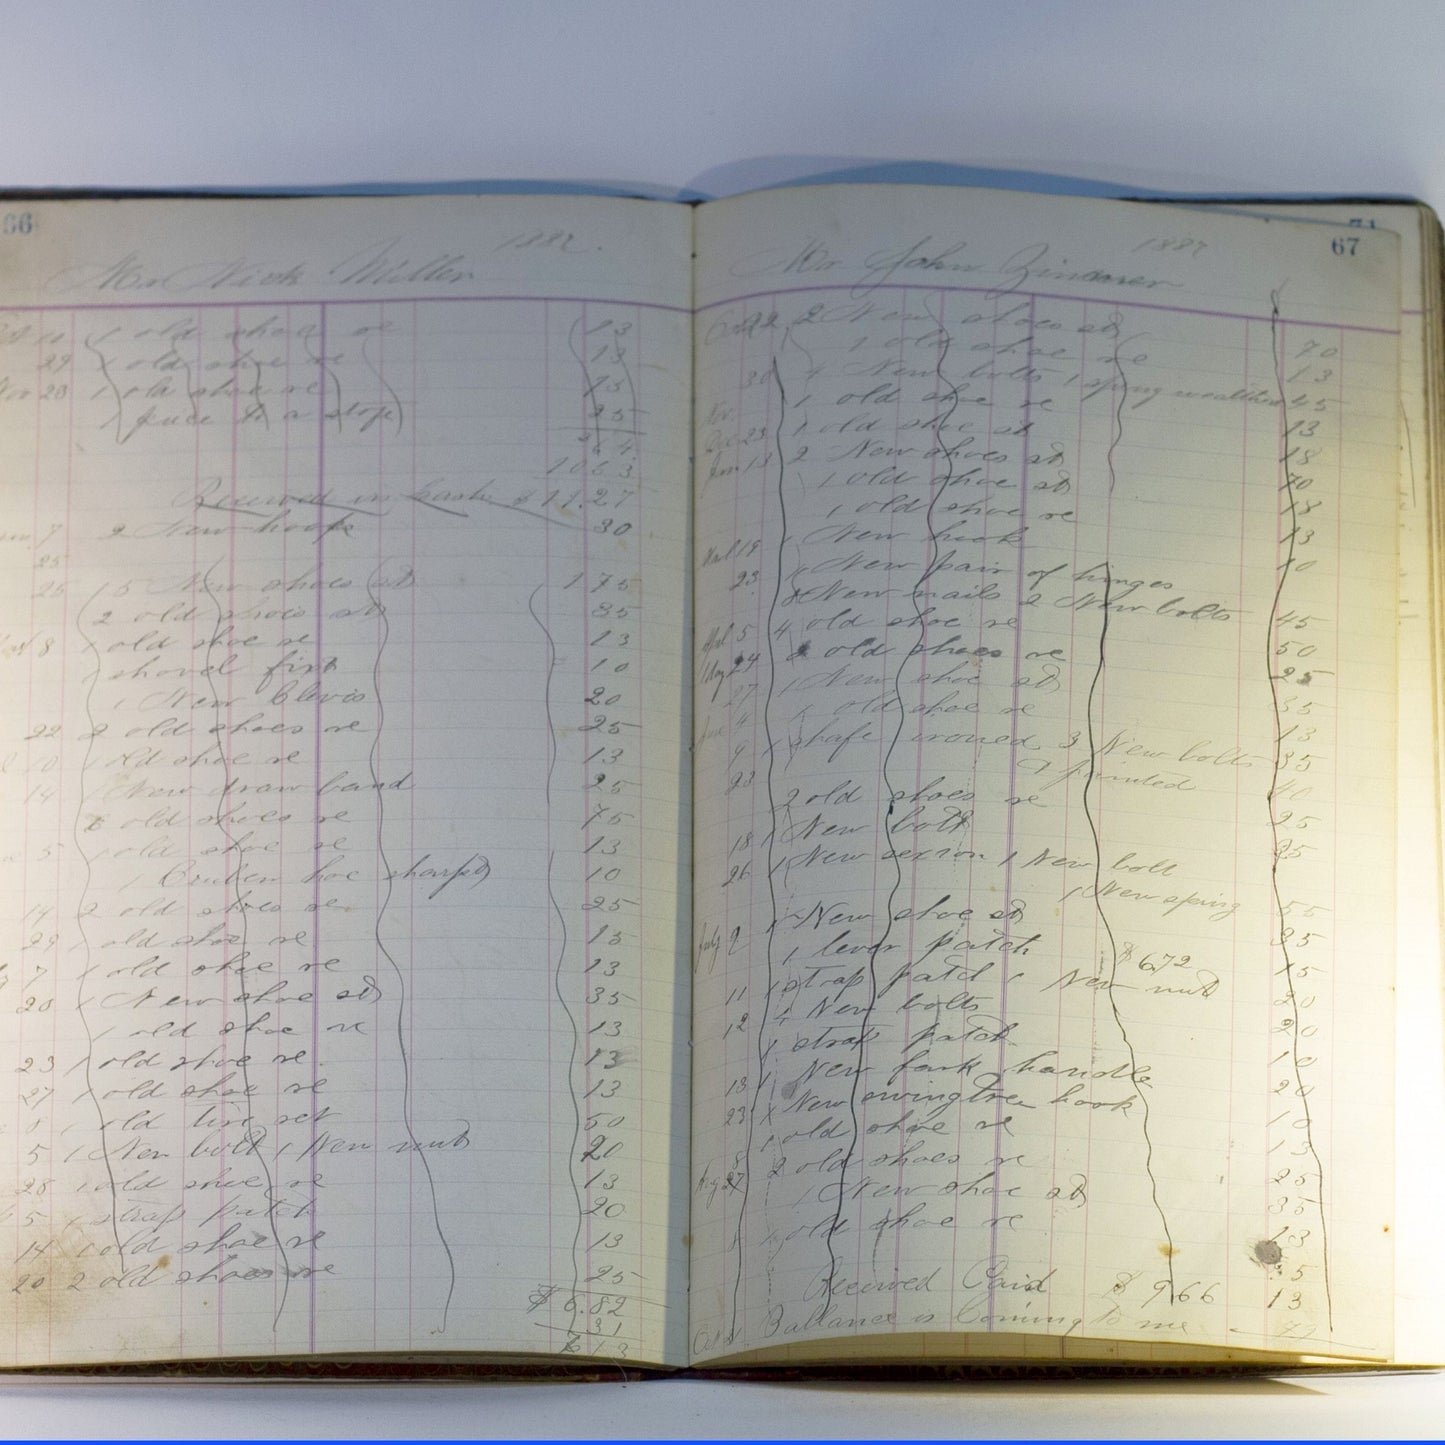 66
1887.
Mr Nick Miller
10 1 old shoe re 13
29 1 old shoe re 13
Nov 28 1 old shoe re 13
1 to a stop 25
264
1063
Received in Cash $11.27
7 2 New hoops 30
25
25 5 New shoes st 175
2 old shoes st 35
8 1 old shoe re 13
shovel fixt 10
1 New Clevis 20
22 2 old shoes re 25
10 1 old shoe re 13
14 1 New draw band 25
6 old shoes re 75
5 1 old shoe re 13
1 hoe sharpd 10
14 2 old shoes re 25
29 1 old shoe re 13
7 1 old shoe re 13
20 1 New shoe st 35
1 old shoe re 13
23 1 old shoe re. 13
27 1 old shoe re 13
1 old tire set 50
5 1 New bolt 1 New nut 20
28 1 old shoe re 13
5 1 strap patch 20
14 1 old shoe re 13
20 2 old shoes re 25
$6.82
31
613
67
1887
Mr John
Oct 22 2 New shoes st 70
1 old shoe re 13
30 4 New bolts 1 spring 45
Nov. 1 old shoe re 13
Dec 23 1 old shoe st 18
Jan 13 2 New shoes st 70
1 old shoe st 18
1 old shoe re 13
1 New hook 10
19
23 1 New pair of hinges
8 New nails 2 New bolts 45
Apl 5 4 old shoe re 50
May 24 2 old shoes re 25
27 1 New shoe st 35
June 4 1 old shoe re 13
9 1 shafe ironed 3 New bolts 35
& painted 40
23 2 old shoes re 25
18 1 New bolt
26 1 New 1 New bolt
1 New spring 55
July 2 1 New shoe st 35
1 lever patch 15
$6.72
11 1 strap patch 1 New nut 20
12 4 New bolts 20
1 strap patch 10
13 1 New fork handle 20
23 1 New swingtree hook 10
1 old shoe re 13
8 2 old shoes re 25
Aug 27 1 New shoe st 35
1 old shoe re 13
Received Paid $9.66
Ballance is Coming to me